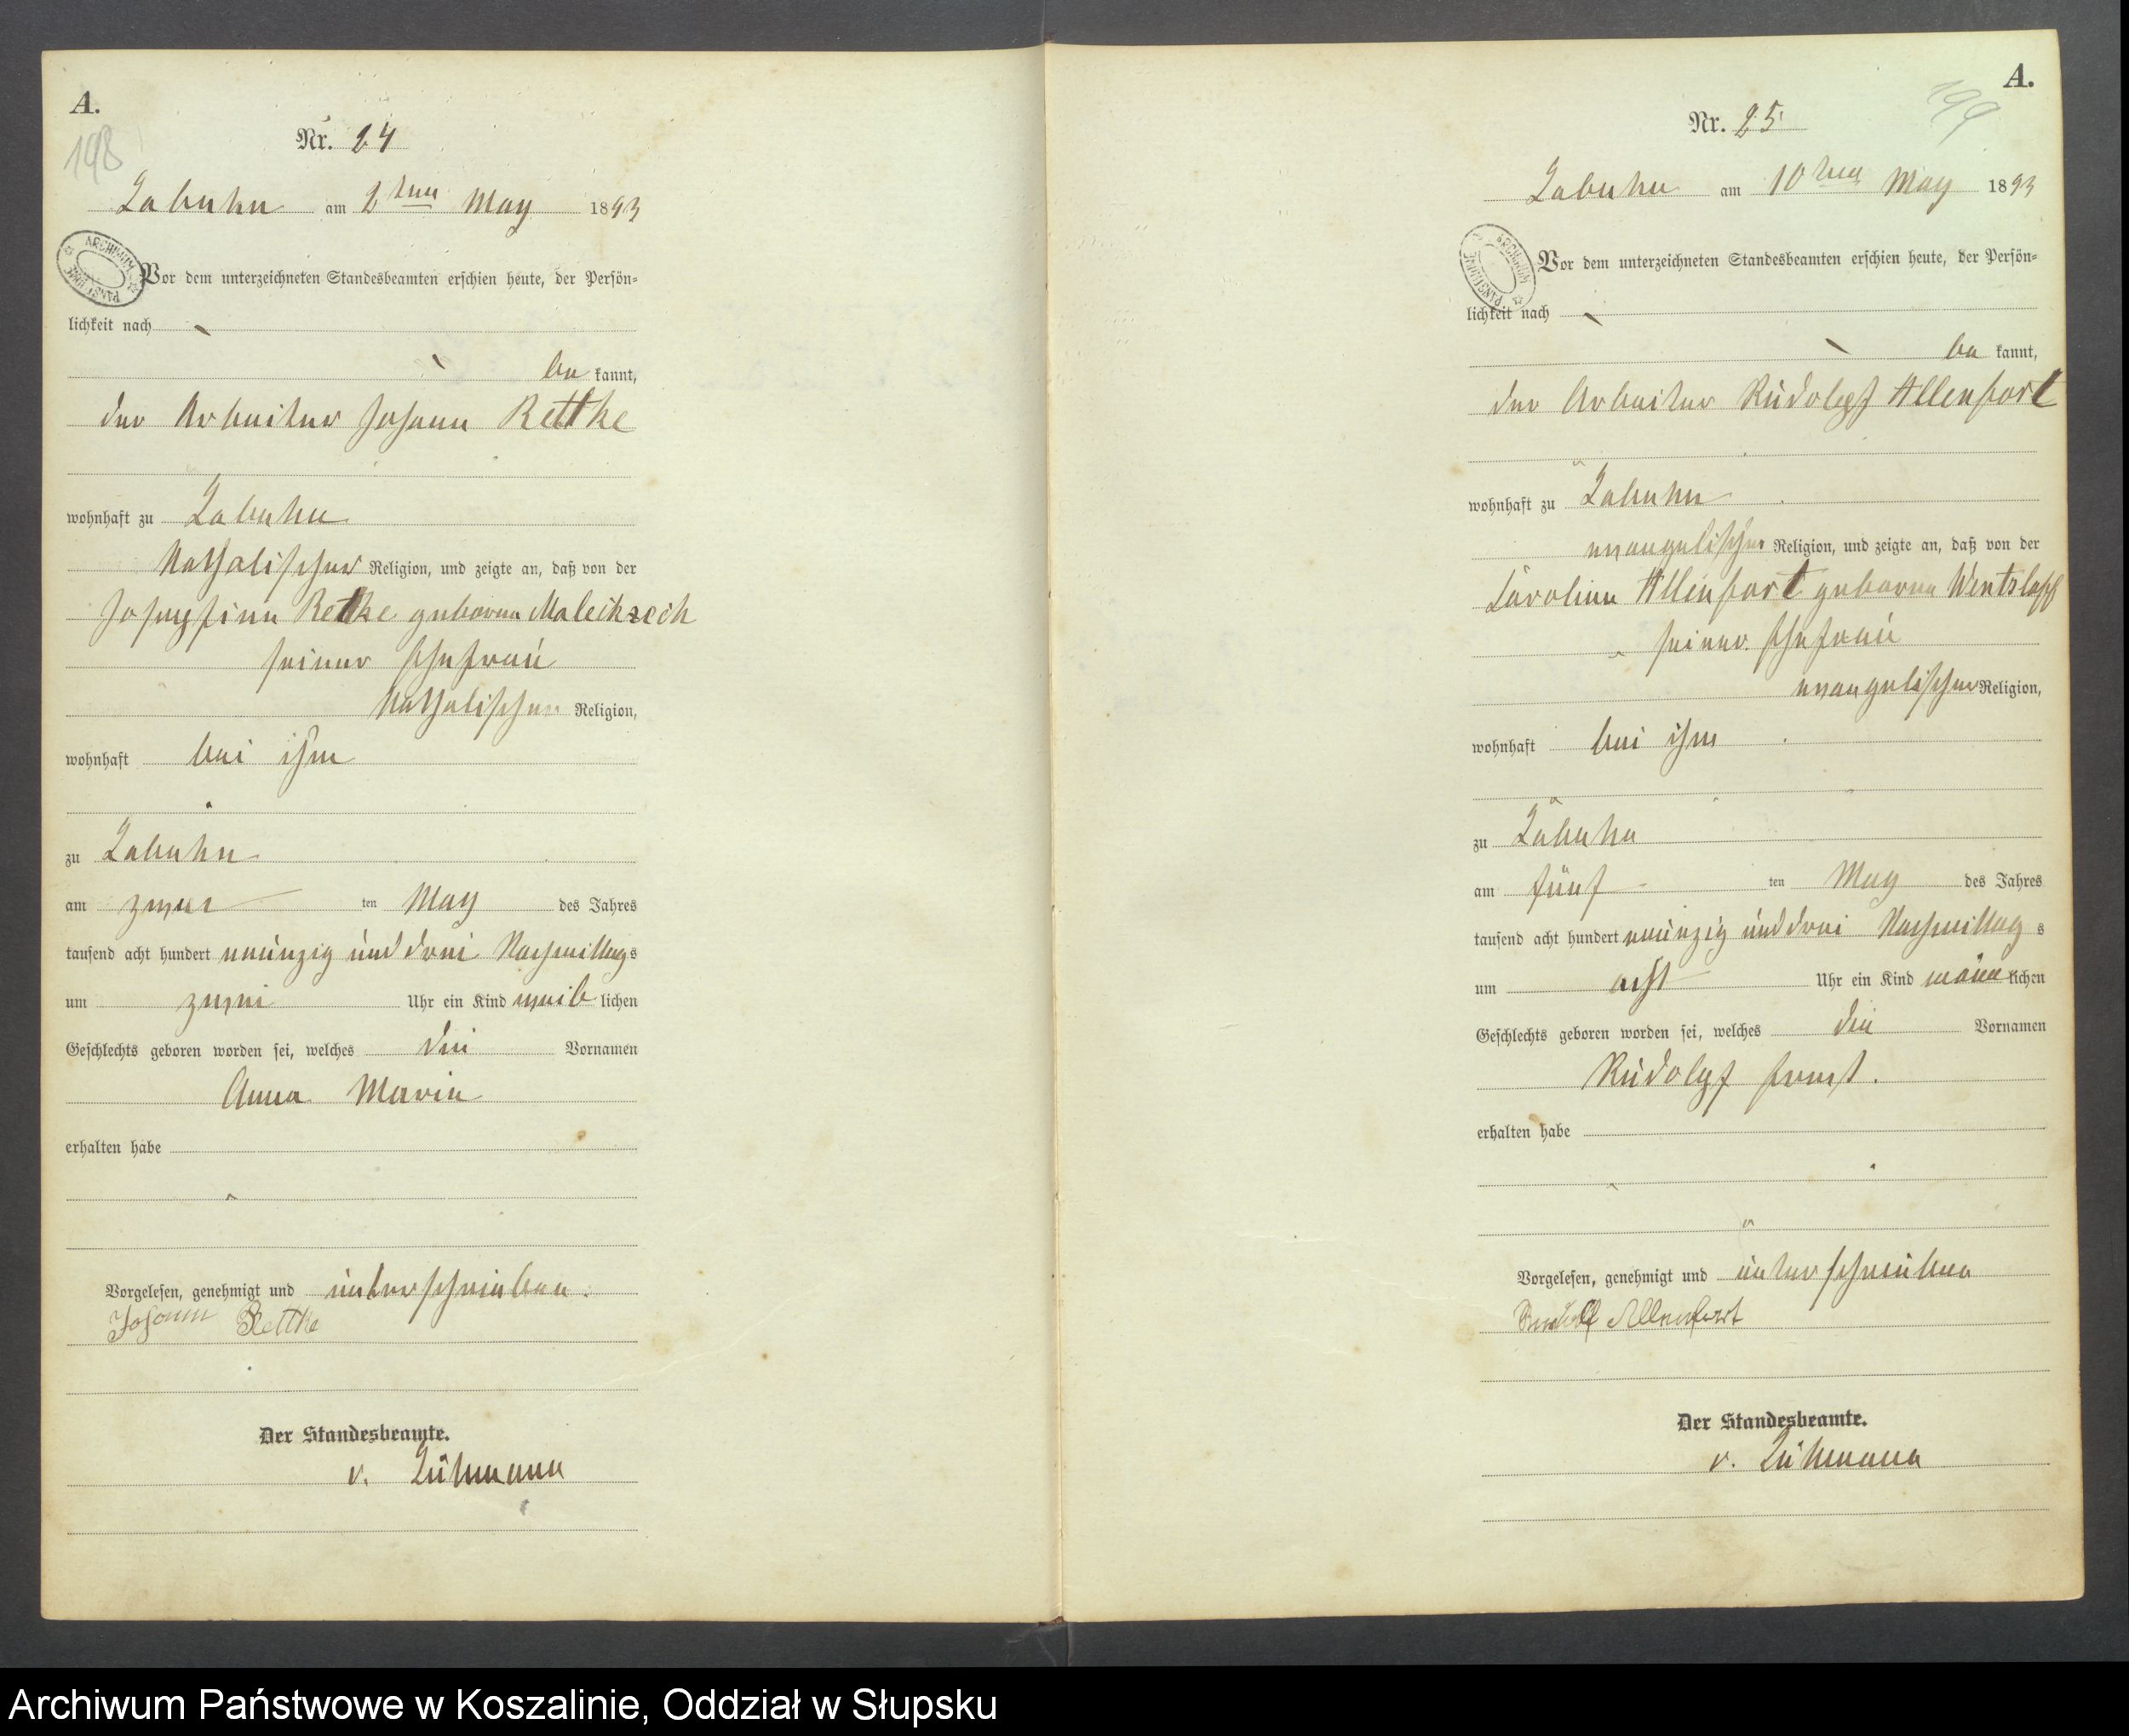 A.
198
Nr. 24
Labuhn am 2ten May 1893
Vor dem unterzeichneten Standesbeamten erschien heute, der Persön=
lichkeit nach
be kannt,
der Arbeiter Johann Rettke
wohnhaft zu Labuhn
Katholischer Religion, und zeigte an, daß von der
Josephine Retke geborne Maleikzeck
seiner Ehefrau
Katholischer Religion,
wohnhaft bei ihm
zu Labuhn
am zwei ten May des Jahres
tausend acht hundert neunzig und drei Nachmittags
um zwei Uhr ein Kind weib lichen
Geschlechts geboren worden sei, welches die Vornamen
Anna Marie
erhalten habe
Vorgelesen, genehmigt und unterschrieben.
Johann Rettke
Der Standesbeamte.
v.
A.
199
Nr. 25
Labuhn am 10ten May 1893
Vor dem unterzeichneten Standesbeamten erschien heute, der Persön=
lichkeit nach
be kannt,
der Arbeiter Rudolph Allenfort
wohnhaft zu Labuhn
evangelischer Religion, und zeigte an, daß von der
Caroline Allenfort geborne Wentslaff
seiner Ehefrau
evangelischer Religion,
wohnhaft bei ihm
zu Labuhn
am fünf ten May des Jahres
tausend acht hundert neunzig und drei Nachmittag s
um acht Uhr ein Kind männ lichen
Geschlechts geboren worden sei, welches die Vornamen
Rudolph Ernst.
erhalten habe
Vorgelesen, genehmigt und unterschrieben
Rudolf Allenfort
Der Standesbeamte.
v.
Archiwum Państwowe w Koszalinie, Oddział w Słupsku